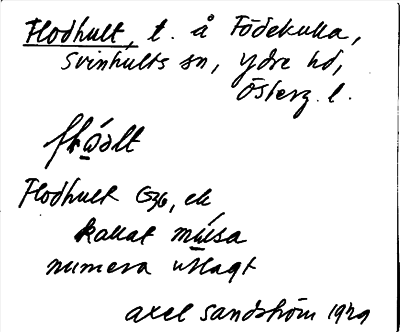 Flodhult, t. å Födekulla,
Svinhults sn, Ydre hd,
Österg. l.
Flodhult G36, ek
kallat mulsa
numera utlagt
Axel Sandström 1929